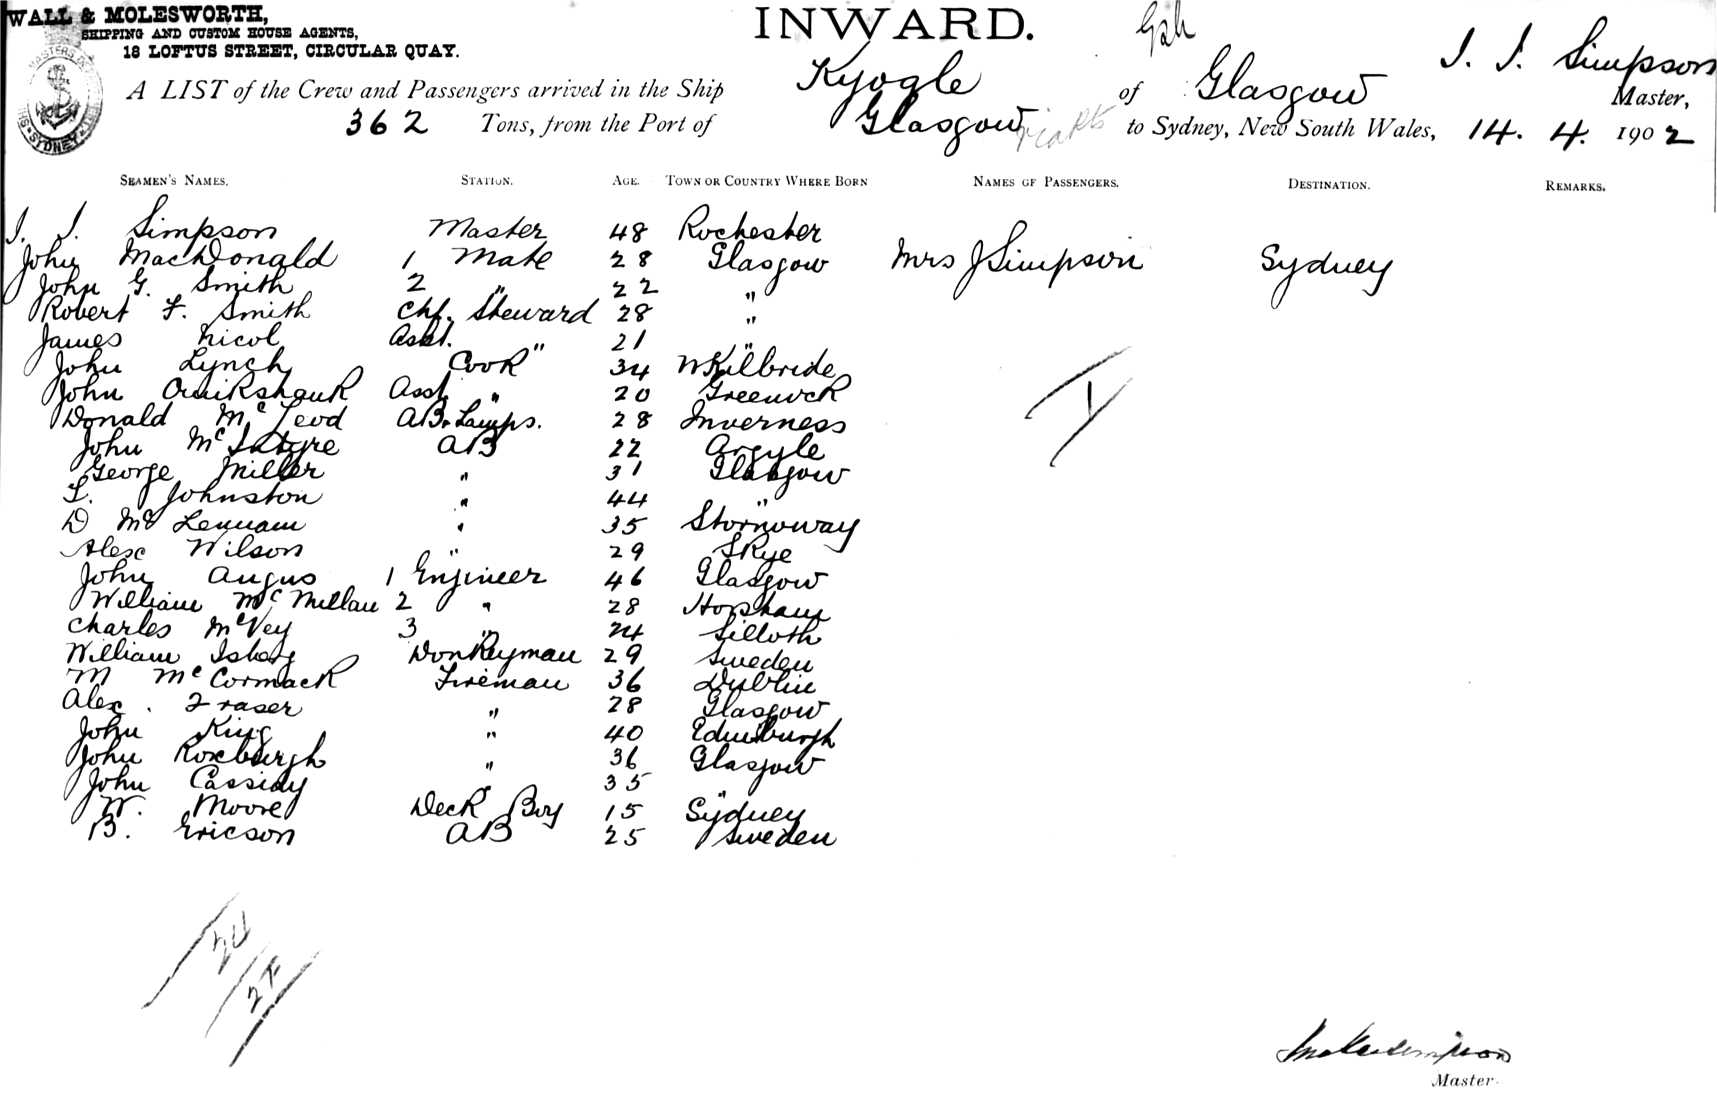 WALL & MOLESWORTH,
SHIPPING AND CUSTOM HOUSE AGENTS,
18 LOFTUS STREET, CIRCULAR QUAY.
INWARD.
A LIST of the Crew and Passengers arrived in the Ship Kyogle of Glasgow J. J. Simpson Master,
362 Tons, from the Port of Glasgow to Sydney, New South Wales, 14. 4. 1902
SEAMEN'S NAMES. STATION. AGE. TOWN OR COUNTRY WHERE BORN NAMES OF PASSENGERS. DESTINATION. REMARKS.
J. J. Simpson Master 48 Rochester
John MacDonald 1 Mate 28 Glasgow Mrs J Simpson Sydney
John G. Smith 2 " 22 "
Robert F. Smith Chf. Steward 28 "
James Nicol Asst. " 21 "
John Lynch Cook 34 W Kilbride
John Cruikshank Asst " 20 Greenock
Donald McLeod AB. Lamps. 28 Inverness
John McIntyre AB 22 Argyle
George Miller " 31 Glasgow
L. Johnston " 44 "
D McLennam " 35 Stornoway
Alex Wilson " 29 Skye
John Angus 1 Engineer 46 Glasgow
William McMillan 2 " 28 Horsham
Charles McVey 3 " 24 Silloth
William Isberg Donkeyman 29 Sweden
M McCormack Fireman 36 Dublin
Alex. Fraser " 28 Glasgow
John King " 40 Edinburgh
John Roxburgh " 36 Glasgow
John Cassidy " 35 "
W. Moore Deck Boy 15 Sydney
B. Ericson AB 25 Sweden
1
24
Master.